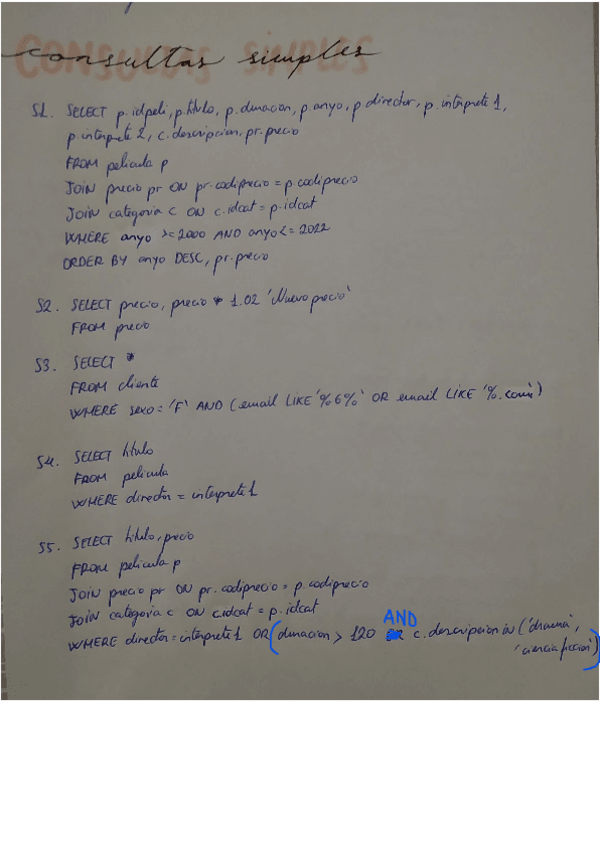 CONSULTAS SIMPLES
consultas simples
S1. SELECT p.idpeli, p.titulo, p.duracion, p.anyo, p director, p.interprete 1,
p interprete 2, c.descripcion, pr.precio
FROM pelicula p
JOIN precio pr ON pr.codiprecio = p.codiprecio
JOIN categoria c ON c.idcat = p.idcat
WHERE anyo >= 2000 AND anyo <= 2022
ORDER BY anyo DESC, pr.precio
S2. SELECT precio, precio * 1.02 'Nuevo precio'
FROM precio
S3. SELECT *
FROM cliente
WHERE sexo = 'F' AND (email LIKE '%6%' OR email LIKE '%.com')
S4. SELECT titulo
FROM pelicula
WHERE director = interprete 1
S5. SELECT titulo, precio
FROM pelicula p
JOIN precio pr ON pr.codiprecio = p.codiprecio
JOIN categoria c ON c.idcat = p.idcat
WHERE director = interprete 1 OR (duracion > 120 AND c.descripcion in ('drama',
'ciencia ficcion')